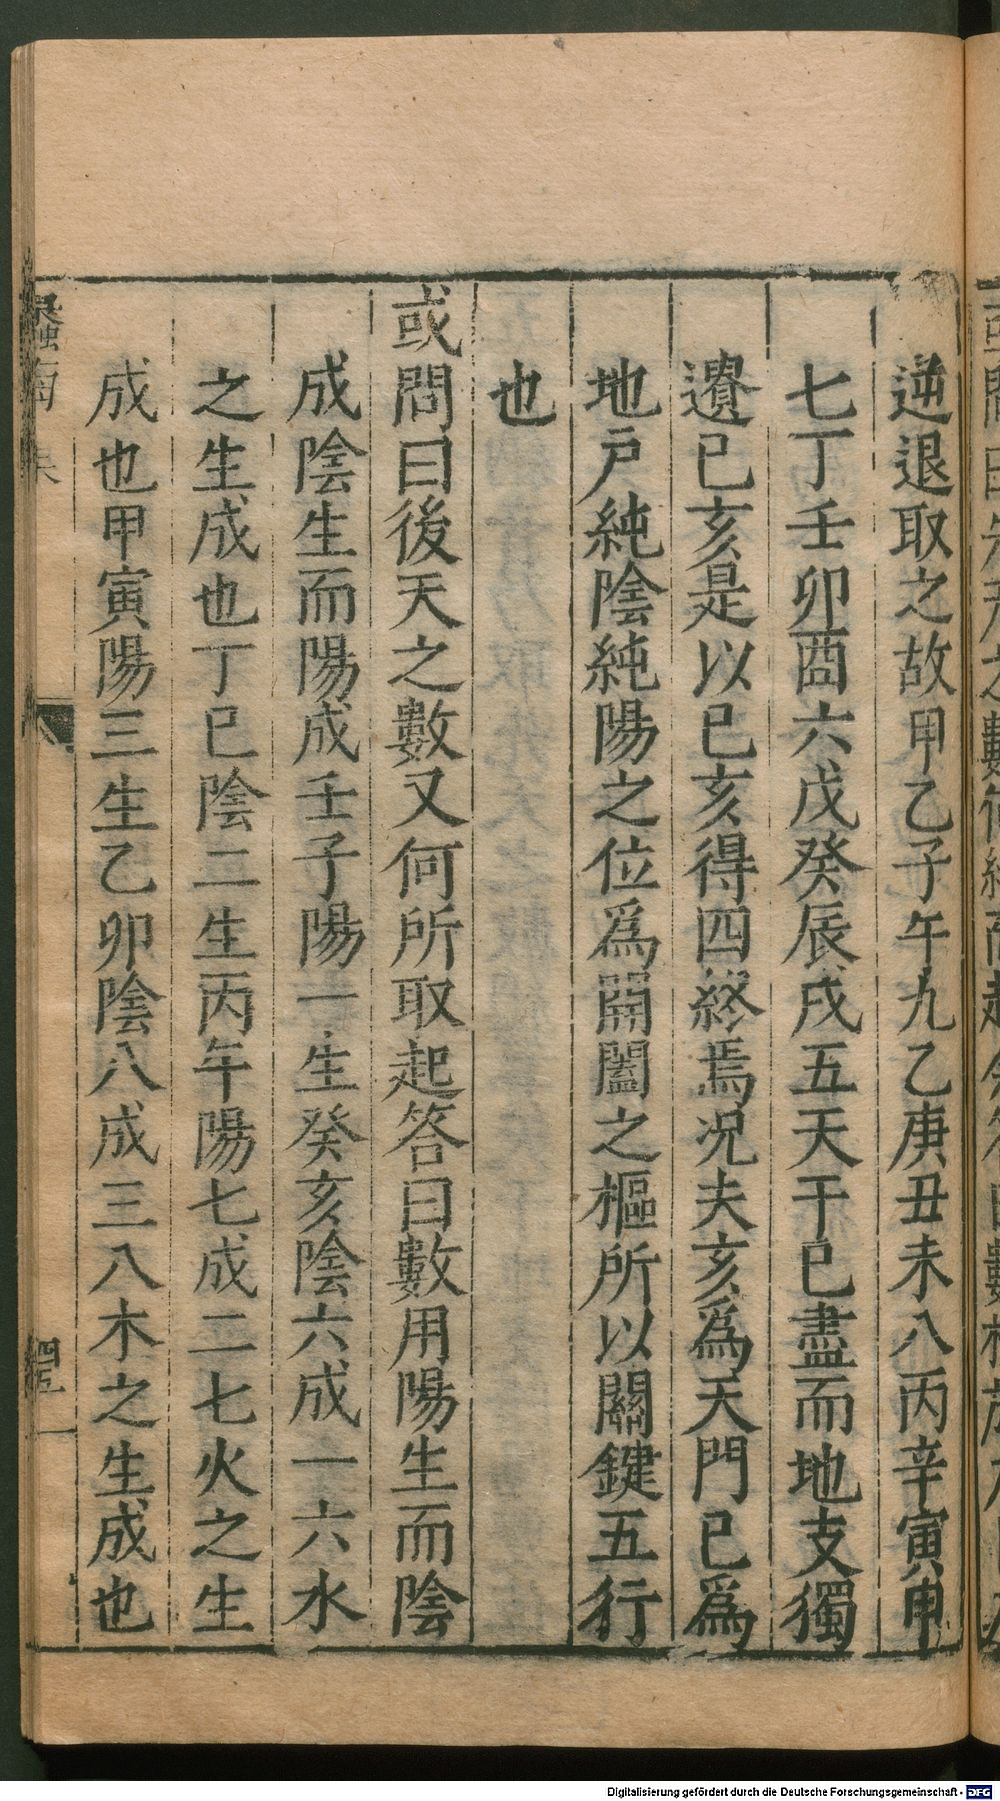 逆退取之故甲乙子午九乙庚丑未八丙辛寅申
七丁壬卯酉六戊癸辰戌五天干已盡而地支獨
遺巳亥是以巳亥得四終焉况夫亥爲天門巳爲
地戸純陰純陽之位爲開闔之樞所以關鍵五行
也
或問曰後天之數又何所取起答曰數用陽生而陰
成陰生而陽成壬子陽一生癸亥陰六成一六水
之生成也丁巳陰二生丙午陽七成二七火之生
成也甲寅陽三生乙卯陰八成三八木之生成也
Digitalisierung gefördert durch die Deutsche Forschungsgemeinschaft - DFG